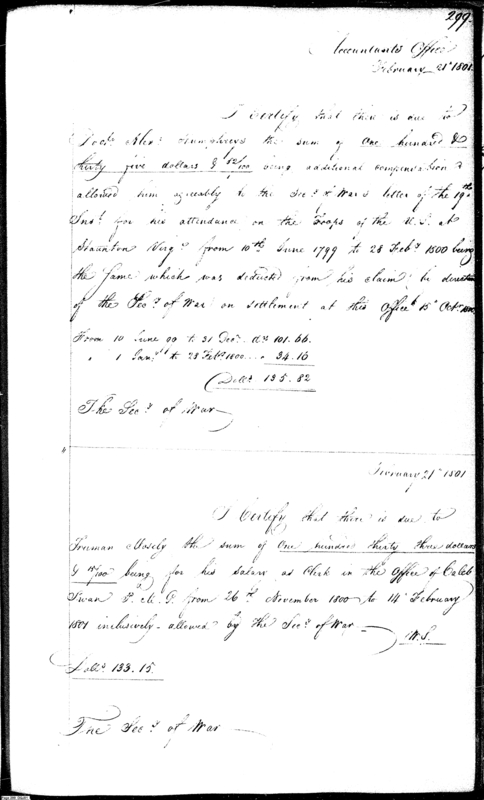 299.
Accountants Office
February 21st 1801.
I Certify that there is due to
Doctr. Alexr. Humphreys the sum of One hundred &
thirty five dollars & 82/100 being additional compensation
allowed him agreeably to the Secy. of War's letter of the 19th
Inst. for his attendance on the Troops of the U.S. at
Staunton Virga. from 10th June 1799 to 28 Feby. 1800 being
the same which was deducted from his claim by direction
of the Secy. of War on settlement at this Office 15 Octr.
From 10 June 99 to 31 Decr. ds 101.66.
" 1 Jany. to 28 Feby. 1800 .. " 34.16
Dolls. 135.82
The Secy. of War
February 21st 1801
I Certify that there is due to
Truman Mosely the sum of One hundred thirty three dollars
& 15/100 being for his salary as Clerk in the Office of Caleb
Swan P. M. G. from 26th November 1800 to 14 February
1801 inclusively - allowed by the Secy. of War
W.S.
Dolls. 133.15
The Secy. of War